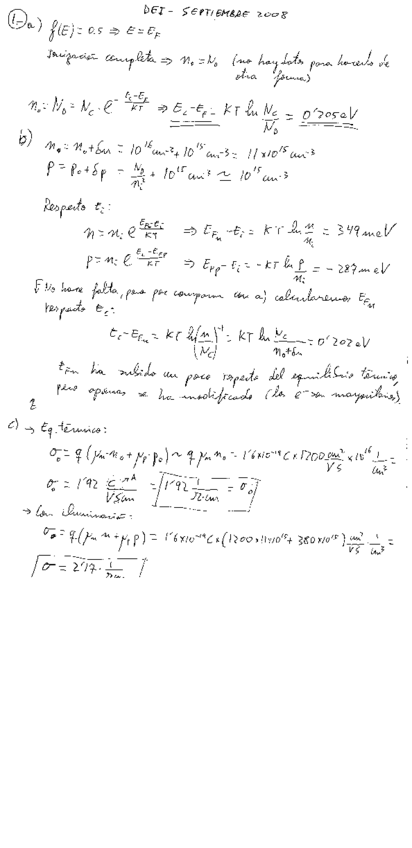 DEI - SEPTIEMBRE 2008
1.- a) f(E) = 0.5 ⇒ E = E_F
Ionización completa ⇒ n₀ = N_D (no hay datos para hacerlo de
otra forma)
n₀ = N_D = N_C · e^(-(E_C-E_F)/KT) ⇒ E_C - E_F = KT ln N_C/N_D = 0'205 eV
b) n = n₀ + δn = 10^16 cm^-3 + 10^15 cm^-3 = 11×10^15 cm^-3
p = p₀ + δp = N_D/n_i² + 10^15 cm^-3 ≃ 10^15 cm^-3
Respecto E_i:
n = n_i e^((E_Fn-E_i)/KT) ⇒ E_Fn - E_i = KT ln n/n_i = 349 meV
p = n_i e^((E_i-E_Fp)/KT) ⇒ E_Fp - E_i = -KT ln p/n_i = -287 meV
No hace falta, pero por comparar con a) calcularemos E_Fn
respecto E_C:
E_C - E_Fn = KT ln (n/N_C)^-1 = KT ln N_C/(n₀+δn) = 0'202 eV
E_Fn ha subido un poco respecto del equilibrio térmico,
pero apenas se ha modificado (los e⁻ son mayoritarios).
c) → Eq. térmico:
σ₀ = q (μ_n · n₀ + μ_p · p₀) ~ q μ_n n₀ = 1'6×10^-19 C × 1200 cm²/VS × 10^16 1/cm³ =
σ₀ = 1'92 = 1'92 1/Ω·cm = σ₀
→ Con iluminación:
σ = q (μ_n n + μ_p p) = 1'6×10^-19 C × (1200×11×10^15 + 380×10^15) cm²/VS · 1/cm³ =
σ = 2'17 · 1/Ωcm